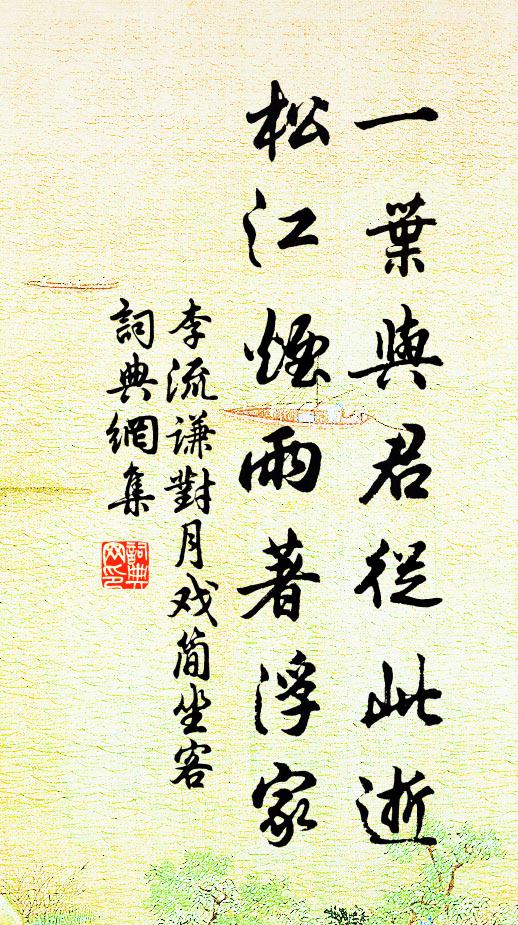 一葉與君從此逝
松江煙雨著浮家
李流谦對月戏简坐客
詞典網集
詞典网印